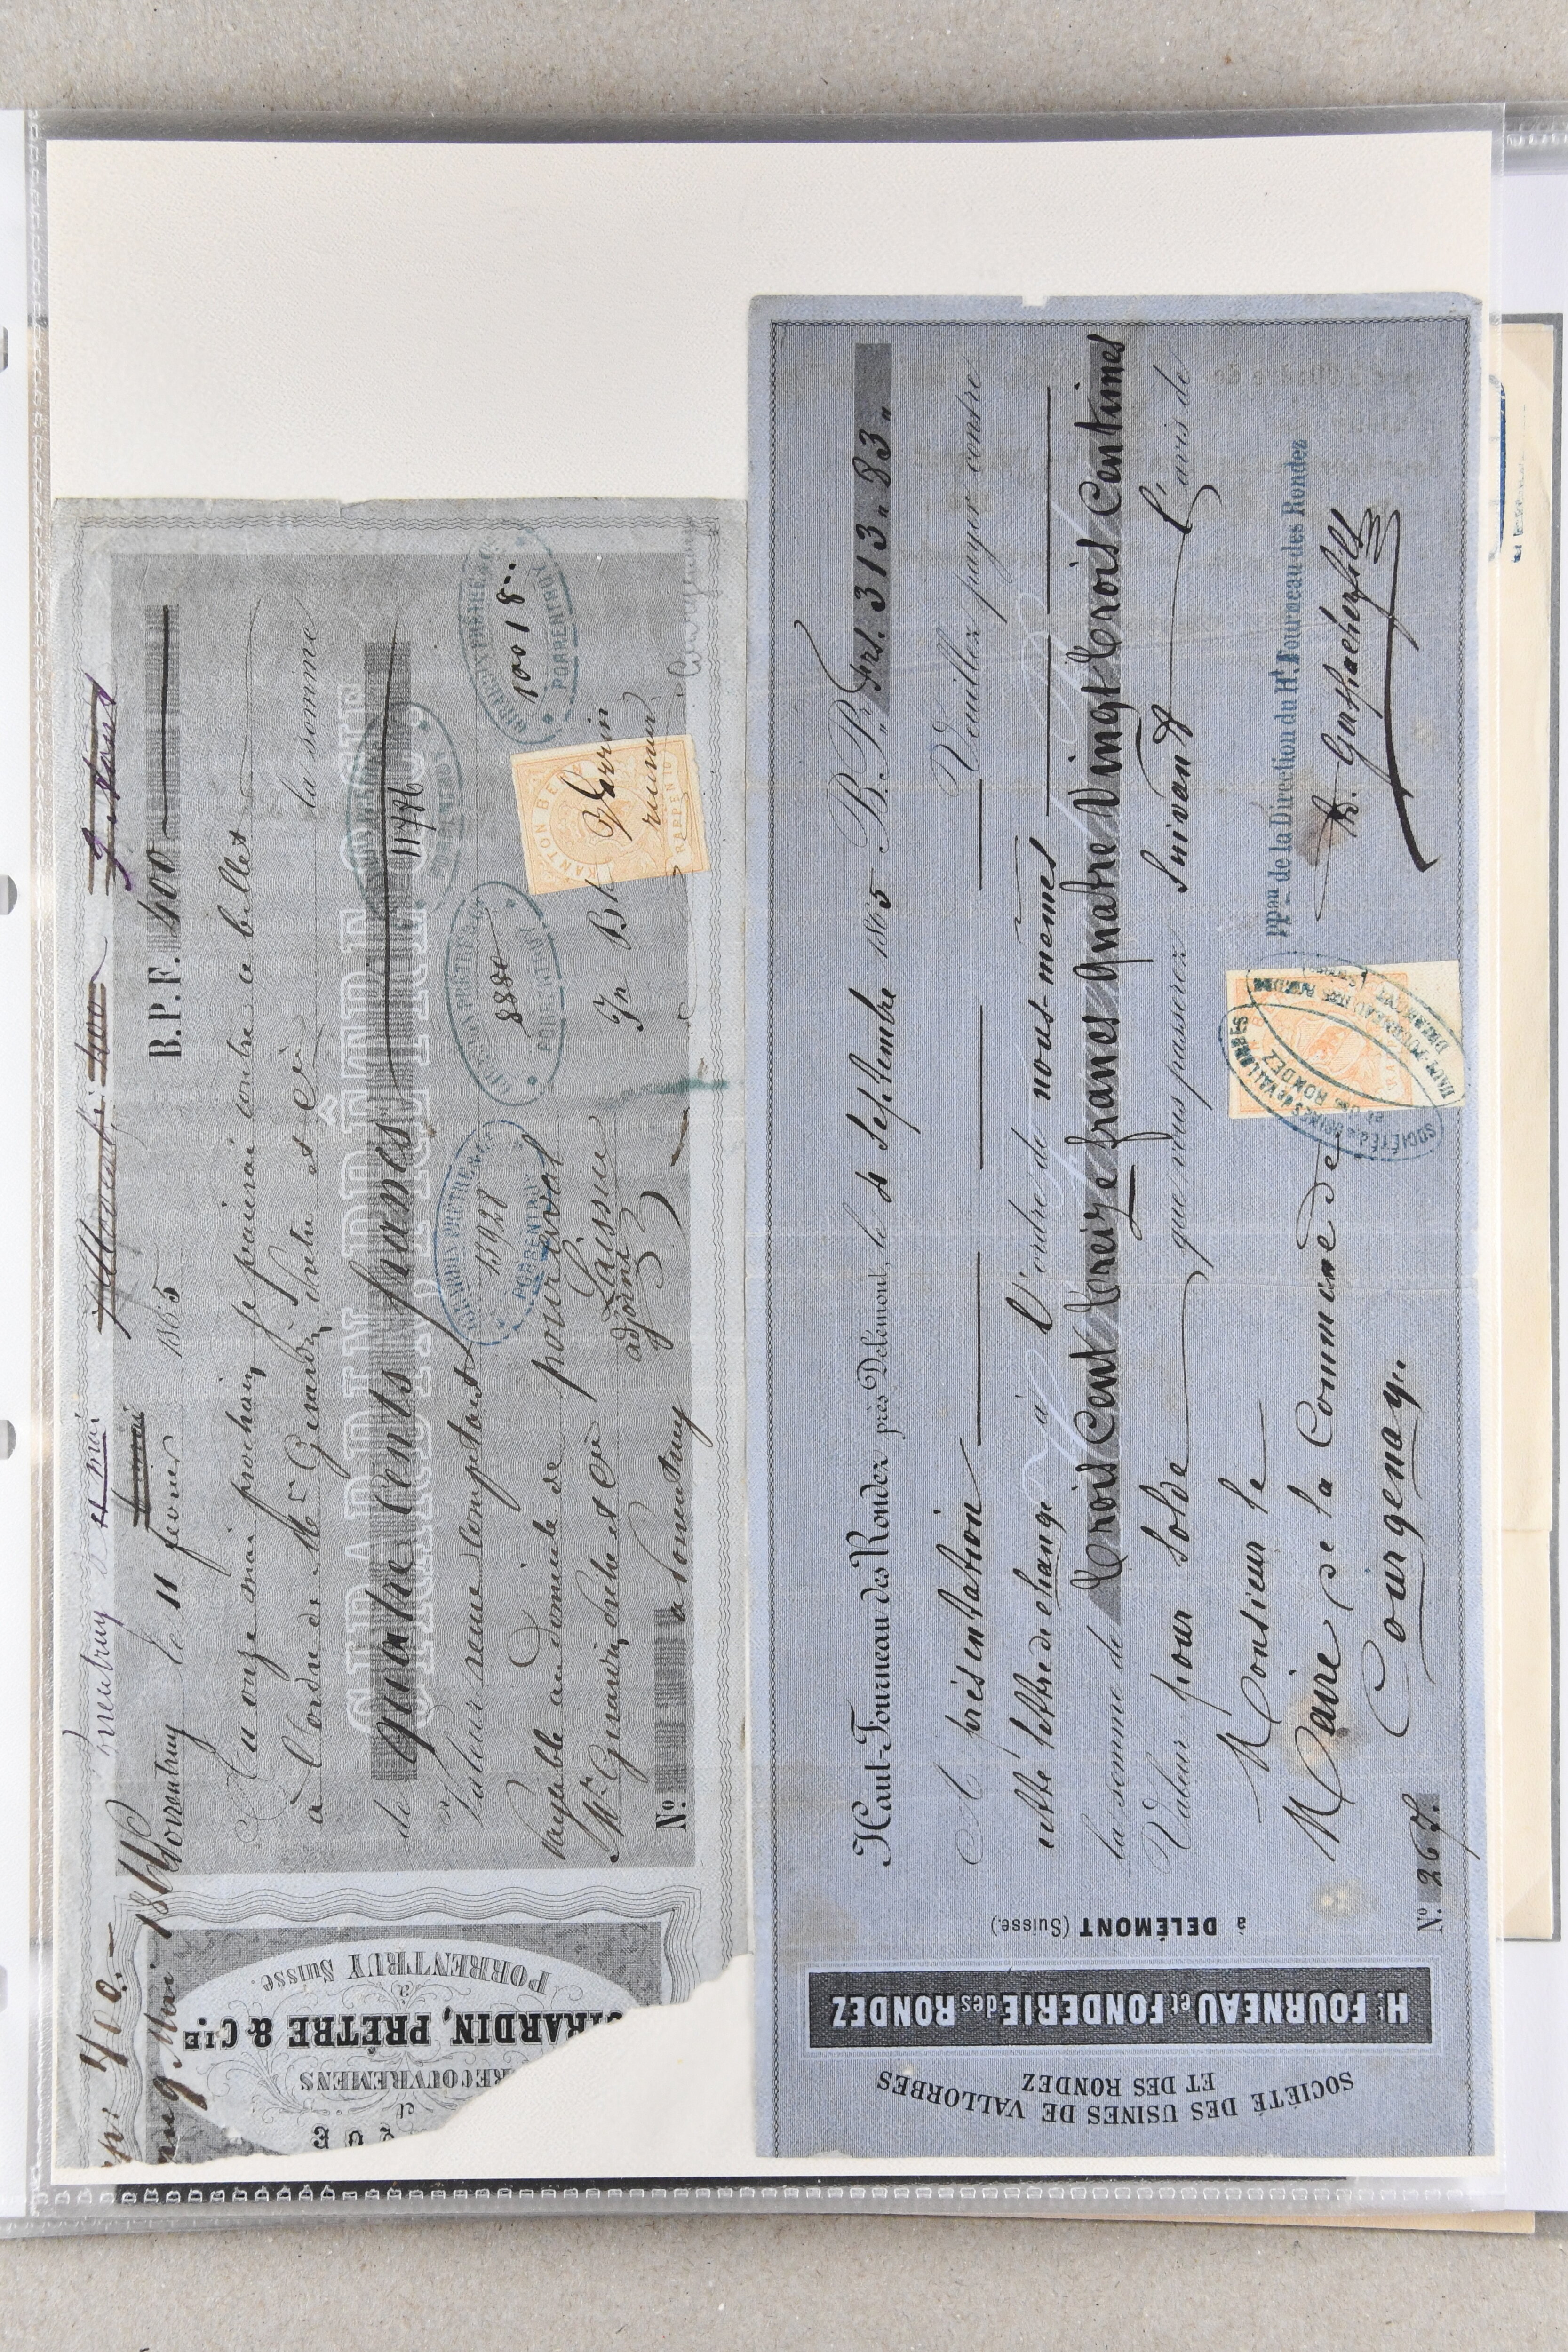 400.-
1866
4 mai
Porrentruy le 11 février 1865
B.P.F. 400
Au onze mai prochain je paierai contre ce billet
à l'ordre de Mrs Girardin, Prêtre et Cie la somme
GIRARDIN, PRÊTRE & CIE
de quatre cents francs
Valeur reçue comptant
payable au domicile de
Mrs Girardin, Prêtre et Cie
à Porrentruy
No
pour aval
adjoint
11776
GIRARDIN PRÊTRE & Cie
13928
PORRENTRUY
GIRARDIN PRÊTRE & Cie
8880
PORRENTRUY
GIRARDIN PRÊTRE & Cie
10018
PORRENTRUY
KANTON BERN
RAPPEN 10
et
RECOUVREMENS
GIRARDIN, PRÊTRE & CIE
à
PORRENTRUY Suisse.
SOCIÉTÉ DES USINES DE VALLORBES
ET DES RONDEZ
Ht FOURNEAU et FONDERIE des RONDEZ
à DELÉMONT (Suisse.)
Haut-Fourneau des Rondez près Delémont, le 4 Septembre 1865 B.P. Frs. 313 „ 83 „
A présentation Veuillez payer contre
cette lettre de change à l'ordre de nous-mêmes
la somme de Trois Cent Treize francs Quatre Vingt Trois Centimes
Valeur pour solde que vous passerez suivant l'avis de
Monsieur le
Maire de la Commune de
Courgenay.
No 267.
SOCIÉTÉ des USINES de VALLORBES
et des RONDEZ
HAUT FOURNEAU DES RONDEZ
DELÉMONT
(Suisse)
ppon de la Direction du Ht Fourneau des Rondez